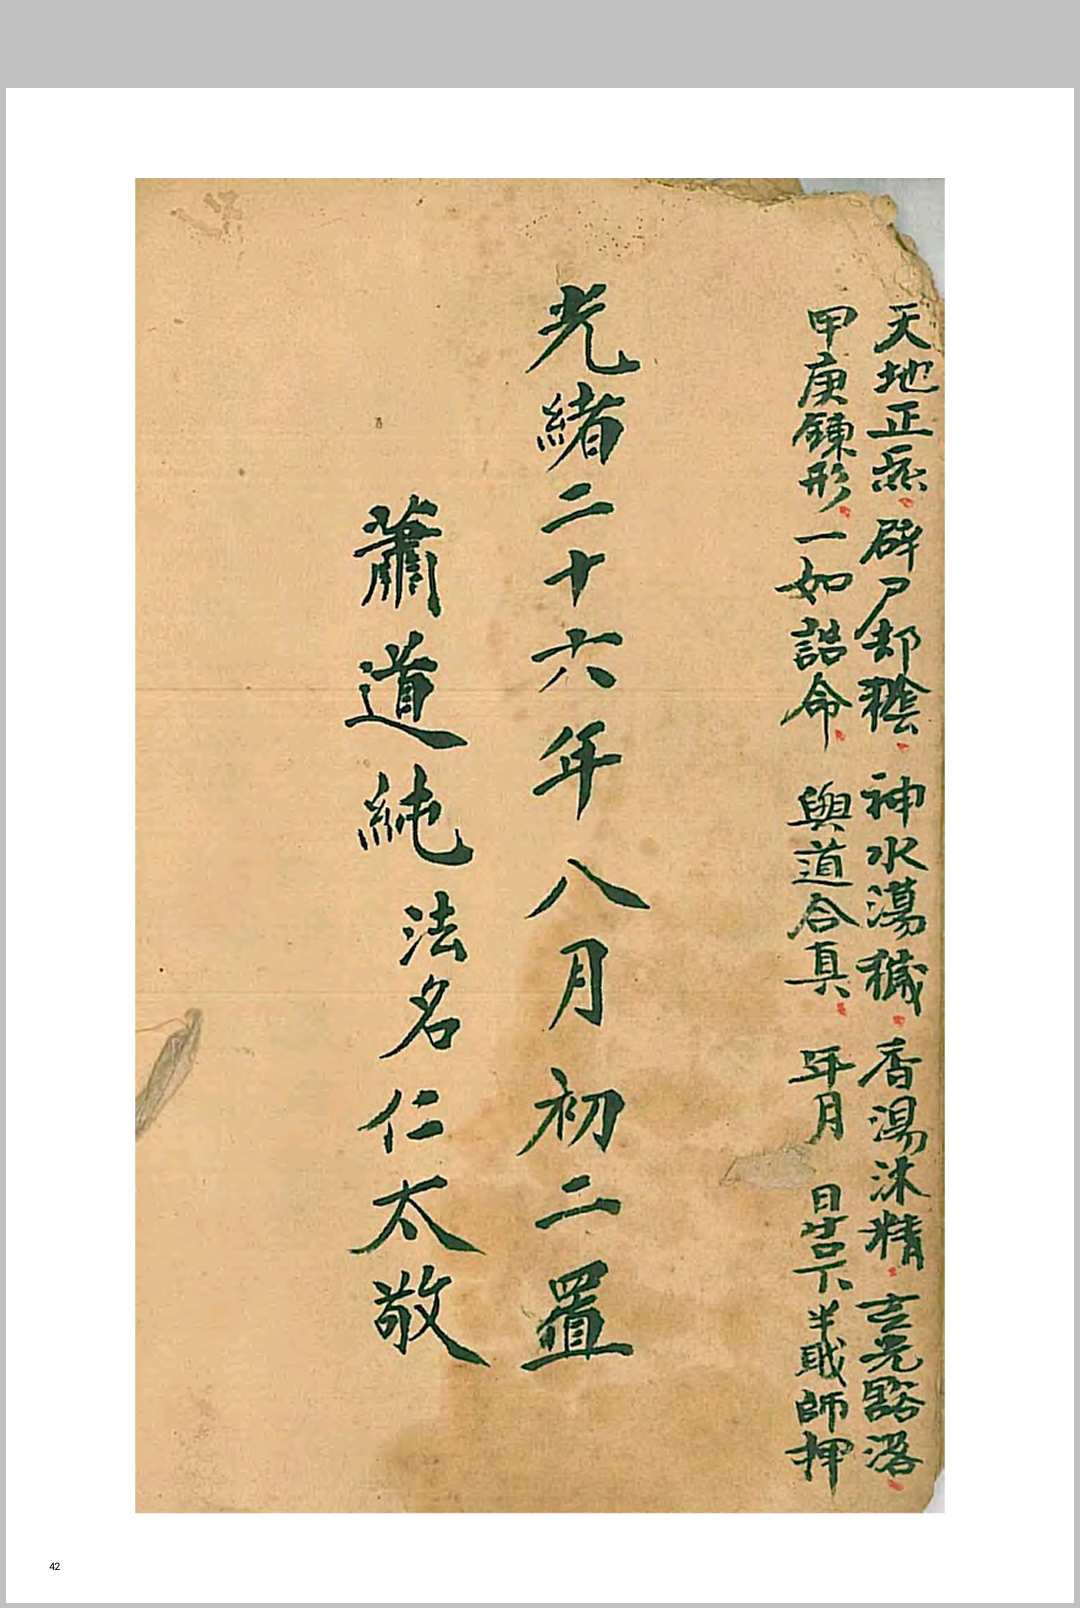 天地正炁辟尸却殮神水蕩穢香湯沐精玄光豁落
甲庚鍊形一如誥命與道合真年月日告下職師押
光緒二十六年八月初二置
蕭道純法名仁太敬
42